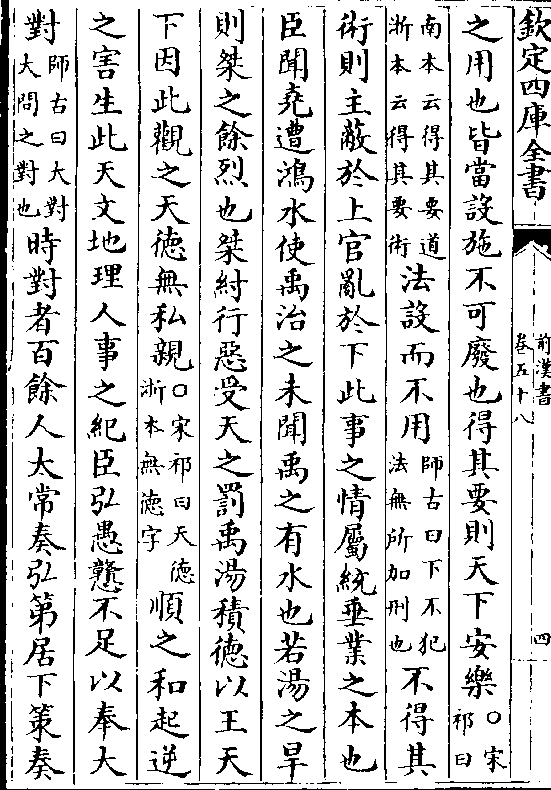 欽定四庫全書
前漢書
卷五十八
四
之用也皆當設施不可廢也得其要則天下安樂○宋祁曰
南本云得其要道浙本云得其要術法設而不用師古曰下不犯法無所加刑也不得其
術則主蔽於上官亂於下此事之情屬統垂業之本也
臣聞堯遭鴻水使禹治之未聞禹之有水也若湯之旱
則桀之餘烈也桀紂行惡受天之罰禹湯積德以王天
下因此觀之天德無私親○宋祁曰天德浙本無德字順之和起逆
之害生此天文地理人事之紀臣弘愚戇不足以奉大
對師古曰大對大問之對也時對者百餘人太常奏弘第居下策奏